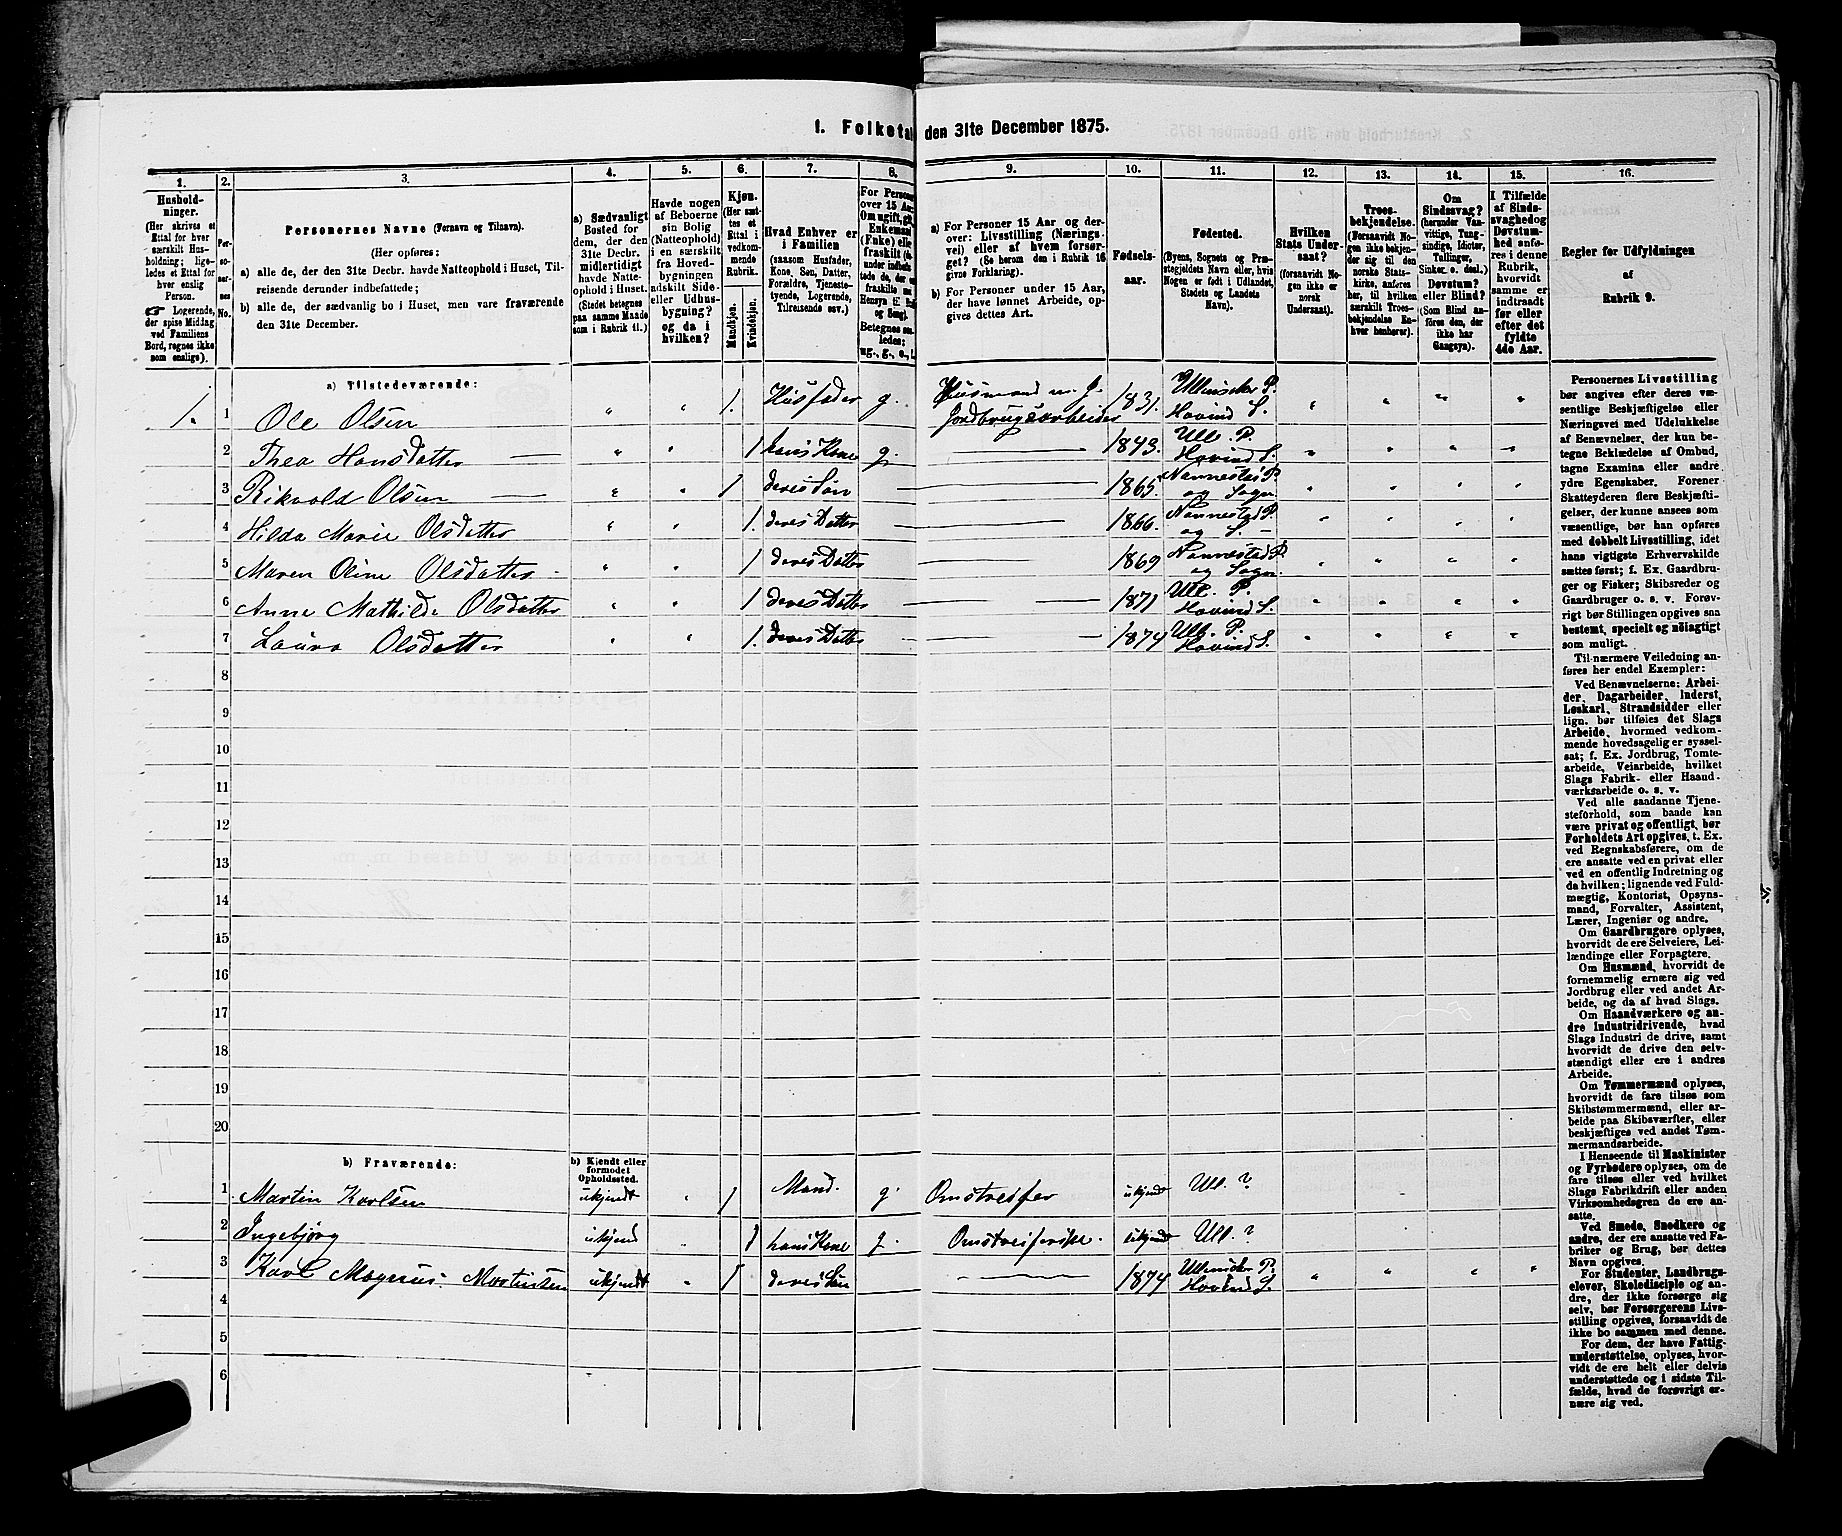 1. Folketal den 31te December 1875.
1.
2.
3.
4.
5.
6.
7.
8.
9.
10.
11.
12.
13.
14.
15.
16.
Husholdninger.
(Her skrives et Ettal for hver særskilt Husholdning; ligeledes et Ettal for hver enslig Person.
☞ Logerende, der spise Middag ved Familiens Bord, regnes ikke som enslige).
Personernes No.
Personernes Navne (Fornavn og Tilnavn).
(Her opføres:
a) alle de, der den 31te Decbr. havde Natteophold i Huset, Tilreisende derunder indbefattede;
b) alle de, der sædvanlig bo i Huset, men vare fraværende den 31te December.
a) Sædvanligt Bosted for dem, der den 31te Decbr. midlertidigt havde Natteophold i Huset. (Stedet betegnes paa samme Maade som i Rubrik 11.)
Havde nogen af Beboerne sin Bolig (Natteophold) i en særskilt fra Hovedbygningen adskilt Side- eller Udhusbygning? og da i hvilken?
Kjøn.
(Her sættes et Ettal i vedkommende Rubrik.
Mandkjøn.
Kvindekjøn.
Hvad Enhver er i Familien
(saasom Husfader, Kone, Søn, Datter, Forældre, Tjenestetyende, Logerende, Tilreisende osv.)
For Person
over 15 Aar
Om ugift, gift
Enkemand
(Enke) eller
fraskilt
Betegnes saaledes:
ug., g., e.,
a) For Personer 15 Aar og derover: Livsstilling (Næringsvei) eller af hvem forsørget? (Se herom den i Rubrik 16 givne Forklaring).
b) For Personer under 15 Aar, der have lønnet Arbeide, opgives dettes Art.
Fødselsaar.
Fødested.
(Byens, Sognets og Præstegjeldets Navn eller, hvis Nogen er født i Udlandet, Stedets og Landets Navn).
Hvilken Stats Undersaat?
(forsaavidt Nogen ikke er norsk Undersaat).
Troesbekjendelse.
(Forsaavidt Nogen ikke bekjender sig til den norske Statskirke, anføres her, til hvilken særskilt Troesbekjendelse Enhver henhører).
Om Sindssvag? (herunder Vanvittige, Tungsindige, Idioter, Tullinger, Sinker o. desl.) Døvstum? eller Blind? (Som Blind anføres den, der ikke har Gangsyn).
I Tilfælde af Sindssvaghed og Døvstumhed anføres i denne Rubrik, hvorvidt samme er indtraadt før eller efter det fyldte 4de Aar.
Regler for Udfyldningen
af
Rubrik 9.
a) Tilstedeværende:
1. 1 Ole Olsen „ „ 1. Husfader g. Husmand m. J. Jordbrugsarbeider 1831. Ullensaker P. Hovind S. „ „ „ „
2 Thea Hansdatter — „ „ 1 hans Kone g. — 1843. Ull. P. Hovind S. „ „ „ „
3 Rikvold Olsen — „ „ 1 deres Søn — 1865 Nannestad P. og Sogn „ „ „ „
4 Hilda Marie Olsdatter „ „ 1. deres Datter — 1866. Nannestad P. og S. „ „ „ „
5 Maren Oline Olsdatter „ „ 1 deres Datter — 1869 Nannestad P. og Sogn „ „ „ „
6 Anne Mathilde Olsdatter „ „ 1 deres Datter — 1871 Ull. P. Hovind S. „ „ „ „
7 Laura Olsdatter „ „ 1. deres Datter — 1874 Ull. P. Hovind S. „ „ „ „
8
9
10
11
12
13
14
15
16
17
18
19
20
b) Fraværende:
b) Kjendt eller formodet Opholdssted.
1 Martin Karlsen ukjendt „ 1 Mand. g. Omstreifer ukjendt Ull. ?
2 Ingebjørg ukjend „ 1 hans Kone g. Omstreiferske. ukjendt Ull. ?
3 Karl Magnus Martinsen ukjendt „ 1 deres Søn — 1874 Ullensaker P. Hovind S. „ „ „ „
4
5
6
Personernes Livsstilling
bør angives efter deres væ-
sentlige Beskjæftigelse eller
Næringsvei med Udelukkelse
af Benævnelser, der kun be-
tegne Beklædelse af Ombud,
tagne Examina eller andre
ydre Egenskaber. Forener
Skatteyderen flere Beskjæfti-
gelser, der kunne ansees som
væsentlige, bør han opføres
med dobbelt Livsstilling, idet
hans vigtigste Erhvervskilde
sættes først; f. Ex. Gaardbru-
ger og Fisker; Skibsreder og
Gaardbruger o. s. v. Forøv-
rigt bør Stillingen opgives saa
bestemt, specielt og nøiagtigt
som muligt.
Til nærmere Veiledning an-
føres her endel Exempler:
Ved Benævnelserne: Arbei-
der, Dagarbeider, Inderst,
Løskarl, Strandsidder eller
lign. bør tilføies det Slags
Arbeide, hvormed vedkom-
mende hovedsagelig er syssel-
sat; f. Ex. Jordbrug, Tomte-
arbeide, Veiarbeide, hvilket
Slags Fabrik- eller Haand-
værksarbeide o. s. v.
Ved alle saadanne Tjene-
steforhold, som baade kan
være privat og offentligt, bør
Forholdets Art opgives, t. Ex.
ved Regnskabsførere, om de
ere ansatte ved en privat eller
ved en offentlig Indretning og
da hvilken; lignende ved Fuld-
mægtig, Kontorist, Opsyns-
mand, Forvalter, Assistent,
Lærer, Ingeniør og andre.
Om Gaardbrugere oplyses,
hvorvidt de ere Selveiere, Lei-
lændinge eller Forpagtere.
Om Husmænd, hvorvidt de
fornemmelig ernære sig ved
Jordbrug eller ved andet Ar-
beide, og da af hvad Slags.
Om Haandværkere og an-
dre Industridrivende, hvad
Slags Industri de drive, samt
hvorvidt de drive den selv-
stændigt eller ere i andres
Arbeide.
Om Tømmermænd oplyses,
hvorvidt de fare tilsøs som
Skibstømmermænd, eller ar-
beide paa Skibsværfter, eller
beskjæftiges ved andet Tøm-
mermandsarbeide.
I Henseende til Maskinister
og Fyrbødere oplyses, om de
fare tilsøs eller ved hvilket
Slags Fabrikdrift eller anden
Virksomhedsgren de ere an-
satte.
Ved Smede, Snedkere og
andre, der ere ansatte ved Fa-
briker og Brug, bør dettes
Navn opgives.
For Studenter, Landbrugs-
elever, Skoledisciple og an-
dre, der ikke forsørge sig
selv, bør Forsørgerens Livs-
stilling opgives, forsaavidt de
ikke bo sammen med denne.
For dem, der have Fattig-
understøttelse, oplyses, hvor-
vidt de ere helt eller delvis
understøttede og i sidste Til-
fælde, hvad de forøvrigt er-
nære sig ved.